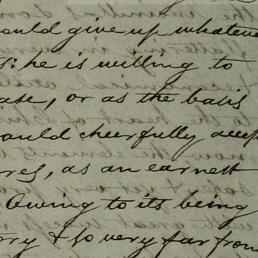 ould give up whateve
s: he is willing to
ase, or as the basis
ould cheerfully accep
res, as an earnest
Owing to its being
ory & so very far from